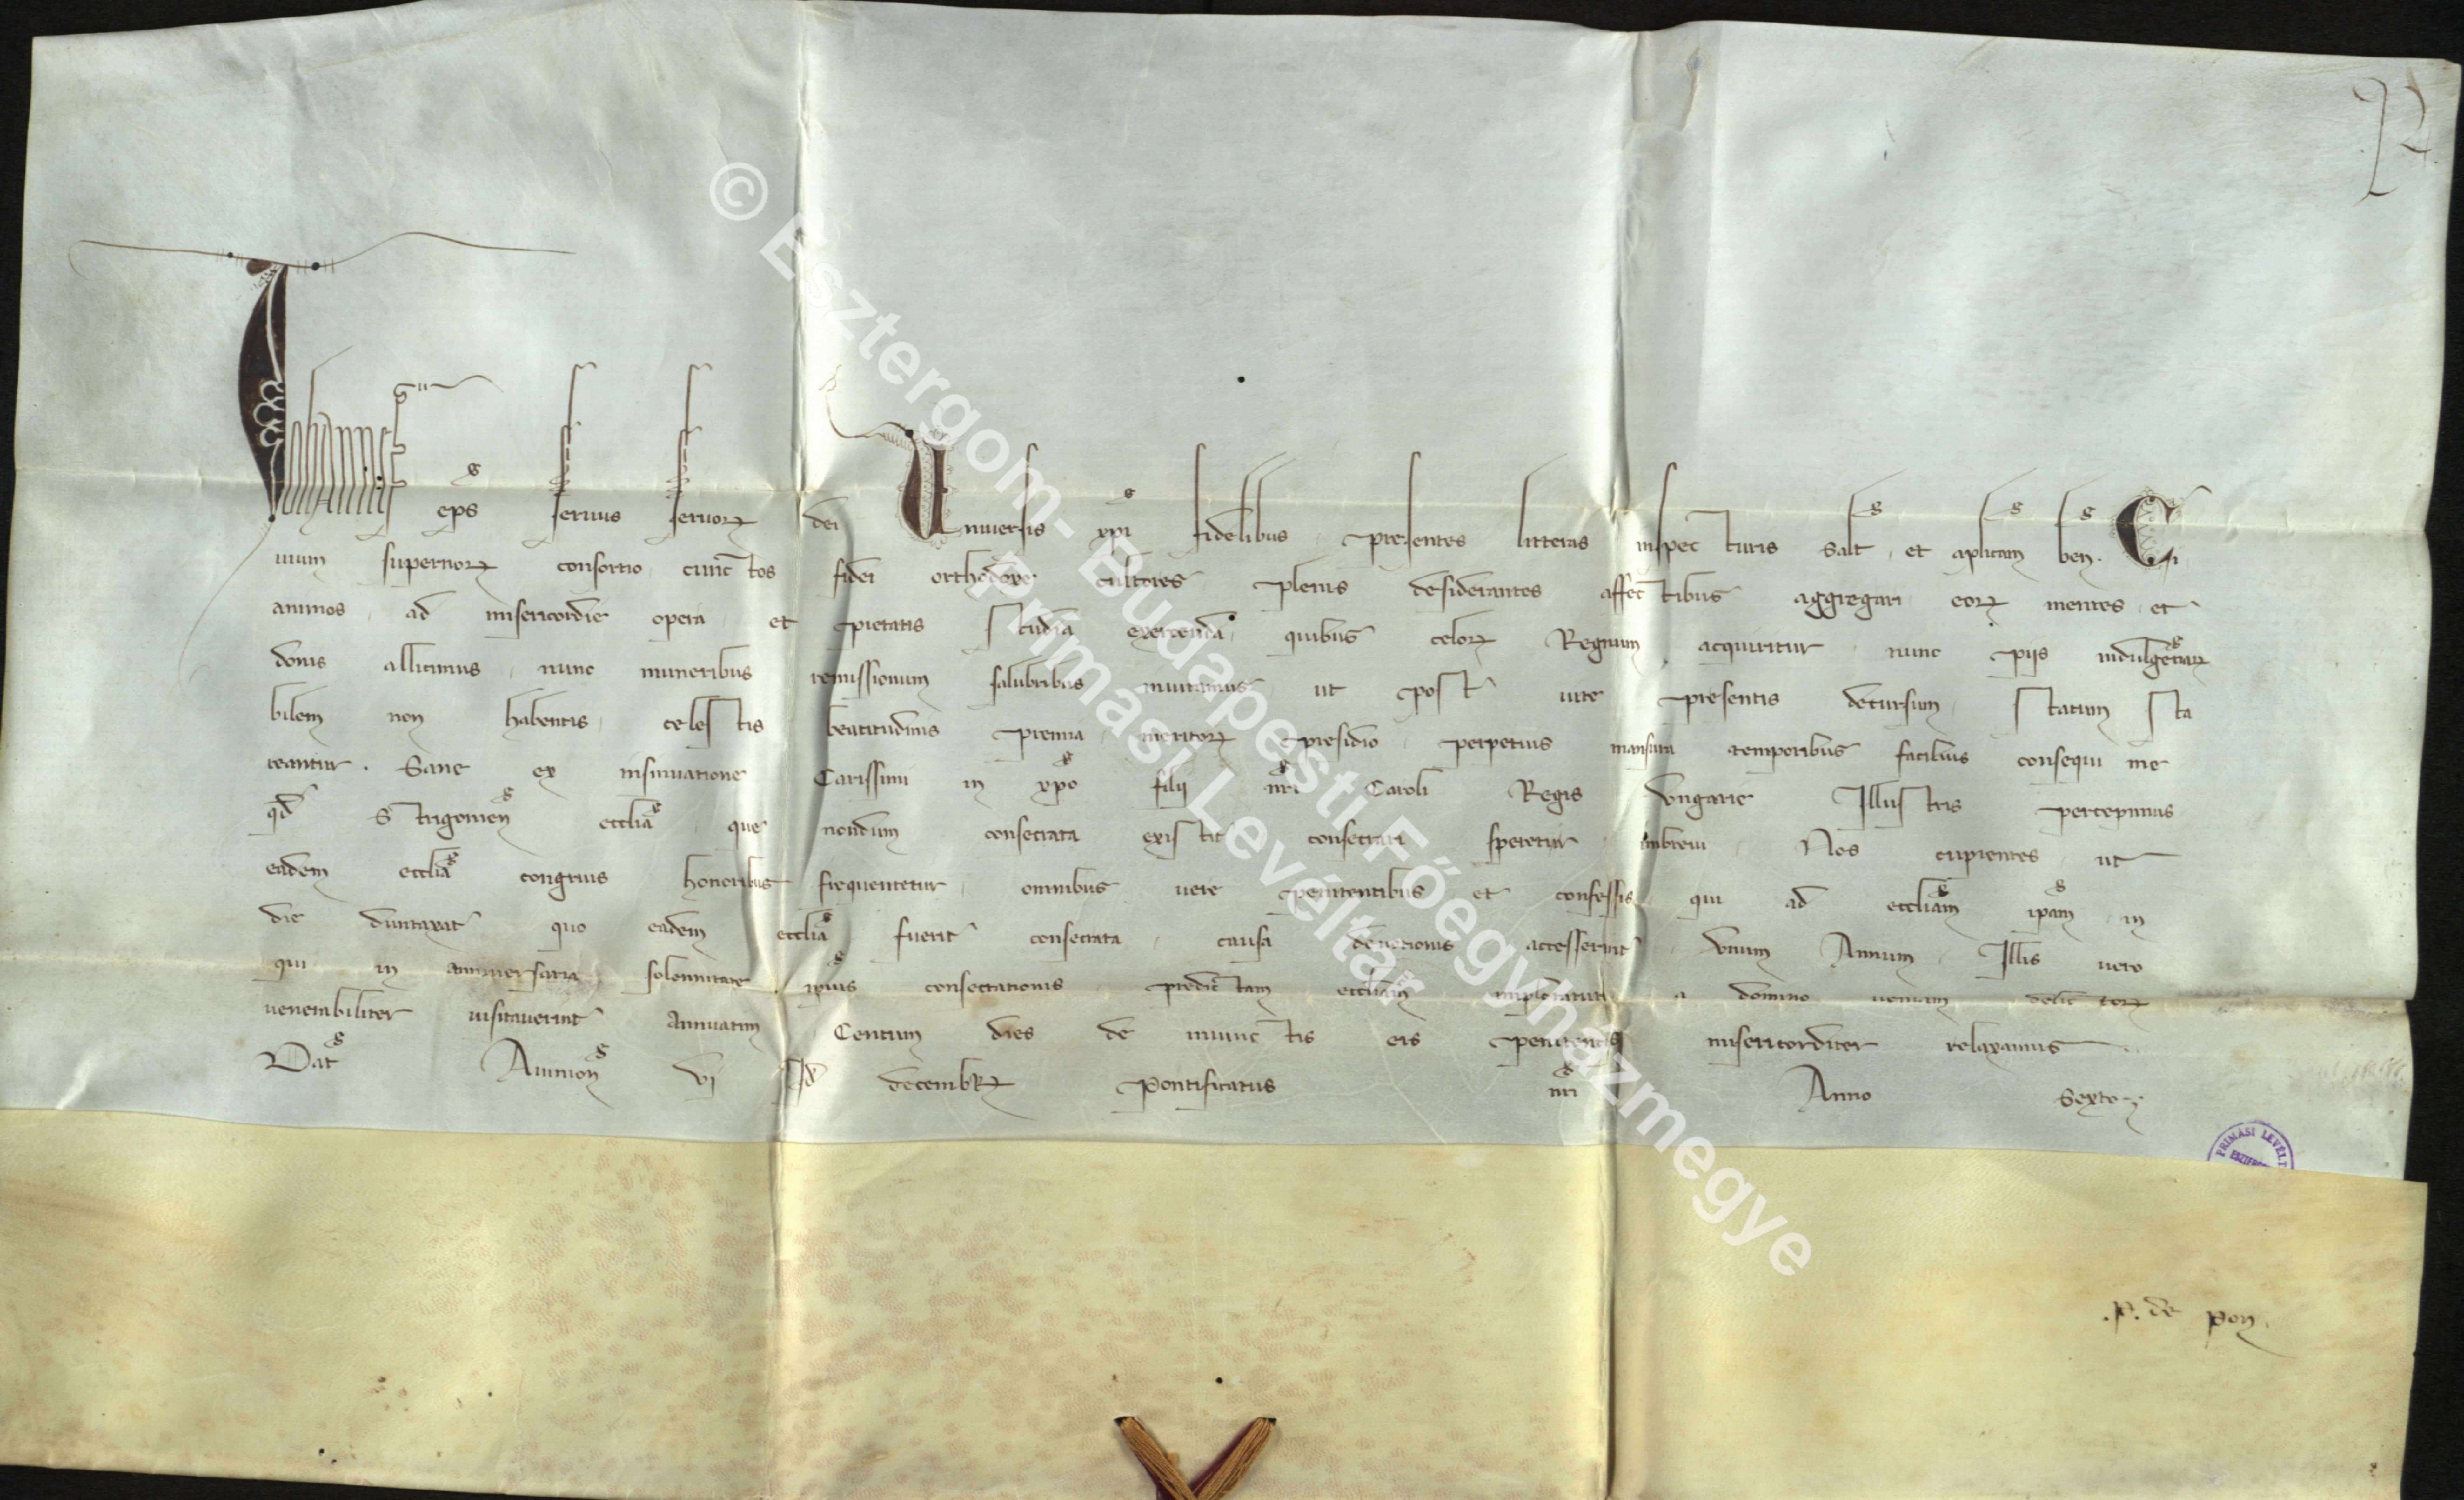 Iohannes eps seruus seruoꝝ dei Uniuersis xpi fidelibus presentes litteras inspecturis Salt et aplicam ben. Ci
uium supernoꝝ consortio cunctos fidei orthodoxe cultores plenis desiderantes affectibus aggregari eoꝝ mentes et
animos ad misericordie opera et pietatis studia exercenda quibus celoꝝ Regnum acquiritur nunc pijs indulgetiaꝝ
donis allicimus nunc muneribus remissionum salubribus inuitamus ut post uite presentis decursum statum sta
bilem non habentis celestis beatitudinis premia meritoꝝ presidio perpetuis mansura temporibus facilius consequi me
reantur. Sane ex insinuatione Carissimi in xpo filij nri Caroli Regis Vngarie Illustris percepimus
qd Strigonien ecclia que nondum consecrata existit consecrari speretur inbreui Nos cupientes ut
eadem ecclia congruis honoribus frequentetur omnibus uere penitentibus et confessis qui ad eccliam ipam in
die duntaxat quo eadem ecclia fuerit consecrata causa deuotionis accesserint Vnum Annum Illis uero
qui in anniuersaria solennitate ipius consecrationis predictam eccliam imploraturi a domino ueniam delictoꝝ
uenerabiliter uisitauerint annuatim Centum dies de iniunctis eis penitentijs misericorditer relaxamus
Dat Auinion VI Id decembꝝ Pontificatus nri Anno Sexto
.P. de Pon.
PRIMÁSI LEVÉLT
ESZTERG
© Esztergom- Budapesti Főegyházmegye
Prímási Levéltár